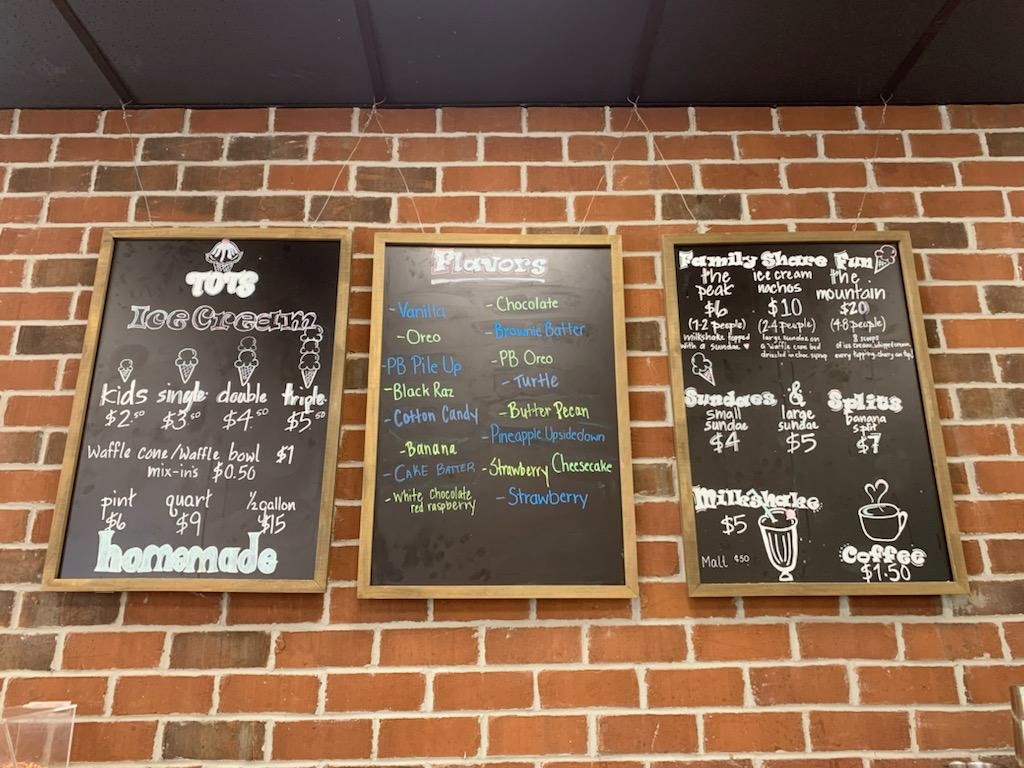 TOTS
Ice Cream
kids single double triple
$2.50 $3.50 $4.50 $5.50
Waffle cone/Waffle bowl $1
mix-in's $0.50
pint quart ½gallon
$6 $9 $15
homemade
Flavors
- Vanilla
- Oreo
- PB Pile Up
- Black Raz
- Cotton Candy
- Banana
- CAKE BATTER
- White Chocolate
red raspberry
- Chocolate
- Brownie Batter
- PB Oreo
- Turtle
- Butter Pecan
- Pineapple Upsidedown
- Strawberry Cheesecake
- Strawberry
Family Share Fun
the
peak
$6
(1-2 people)
milkshake topped
with a sundae
ice cream
nachos
$10
(2-4 people)
large sundae on
a waffle cone bed
drizzled in choc syrup
the
mountain
$20
(4-8 people)
8 scoops
of ice cream, whipped cream,
every topping, cherry on top!
Sundaes & Splits
small
sundae
$4
large
sundae
$5
banana
split
$7
Milkshake
$5
Malt $.50
Coffee
$1.50